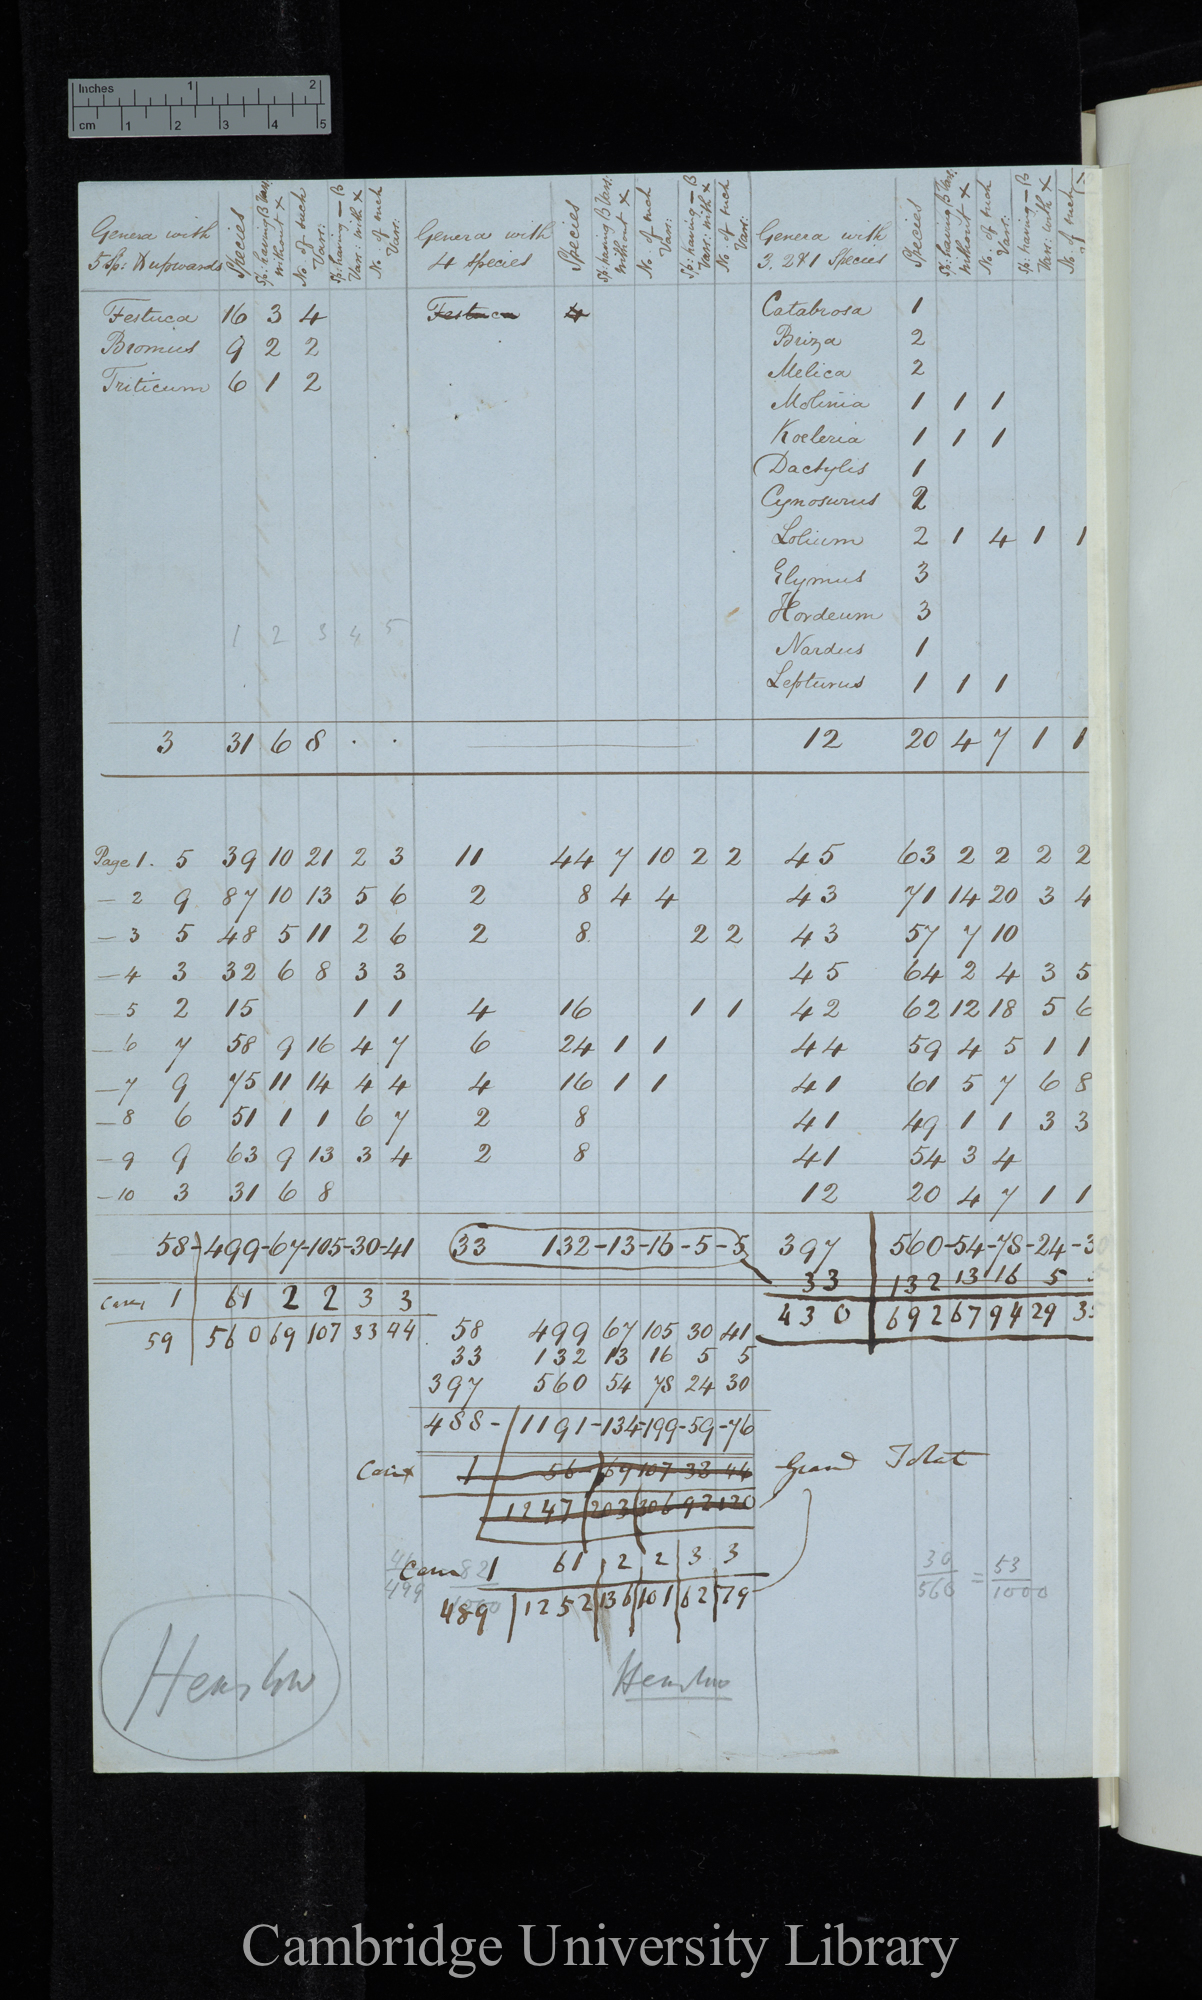 Inches 1 2
cm 1 2 3 4 5
Genera with 5 Sp: & upwards | Species | Sp: having B Vars: without x | No. of such Vars: | Sp: having — B Vars: with x | No. of such Vars: | Genera with 4 Species | Species | Sp: having B Vars: without x | No. of such Vars: | Sp: having — B Vars: with x | No. of such Vars: | Genera with 3. 2 & 1 Species | Species | Sp: having B Vars: without x | No. of such Vars: | Sp: having — B Vars: with x | No. of such
Festuca 16 3 4 Festuca 4 Catabrosa 1
Bromus 9 2 2 Briza 2
Triticum 6 1 2 Melica 2
Molinia 1 1 1
Koeleria 1 1 1
Dactylis 1
Cynosurus 2
Lolium 2 1 4 1 1
Elymus 3
Hordeum 3
1 2 3 4 5
Nardus 1
Lepturus 1 1 1
3 31 6 8 . . 12 20 4 7 1 1
Page 1. 5 39 10 21 2 3 11 44 7 10 2 2 45 63 2 2 2 2
— 2 9 87 10 13 5 6 2 8 4 4 43 71 14 20 3 4
— 3 5 48 5 11 2 6 2 8 2 2 43 57 7 10
— 4 3 32 6 8 3 3 45 64 2 4 3 5
— 5 2 15 1 1 4 16 1 1 42 62 12 18 5 6
— 6 7 58 9 16 4 7 6 24 1 1 44 59 4 5 1 1
— 7 9 75 11 14 4 4 4 16 1 1 41 61 5 7 6 8
— 8 6 51 1 1 6 7 2 8 41 49 1 1 3 3
— 9 9 63 9 13 3 4 2 8 41 54 3 4
— 10 3 31 6 8 12 20 4 7 1 1
58-499-67-105-30-41 33 132-13-16-5-5 397 560-54-78-24-30
33 132 13 16 5 5
Carex 1 61 2 2 3 3
430 692 67 94 29 35
59 560 69 107 33 44
58 499 67 105 30 41
33 132 13 16 5 5
397 560 54 78 24 30
488-1191-134-199-59-76
Carex 1 56 69 107 33 44 Grand Total
1247 203 306 92 120
Carex 1 61 2 2 3 3
489 1252 136 101 62 79
41/499 82/1000
30/560 = 53/1000
Henslow
Henslow
Cambridge University Library